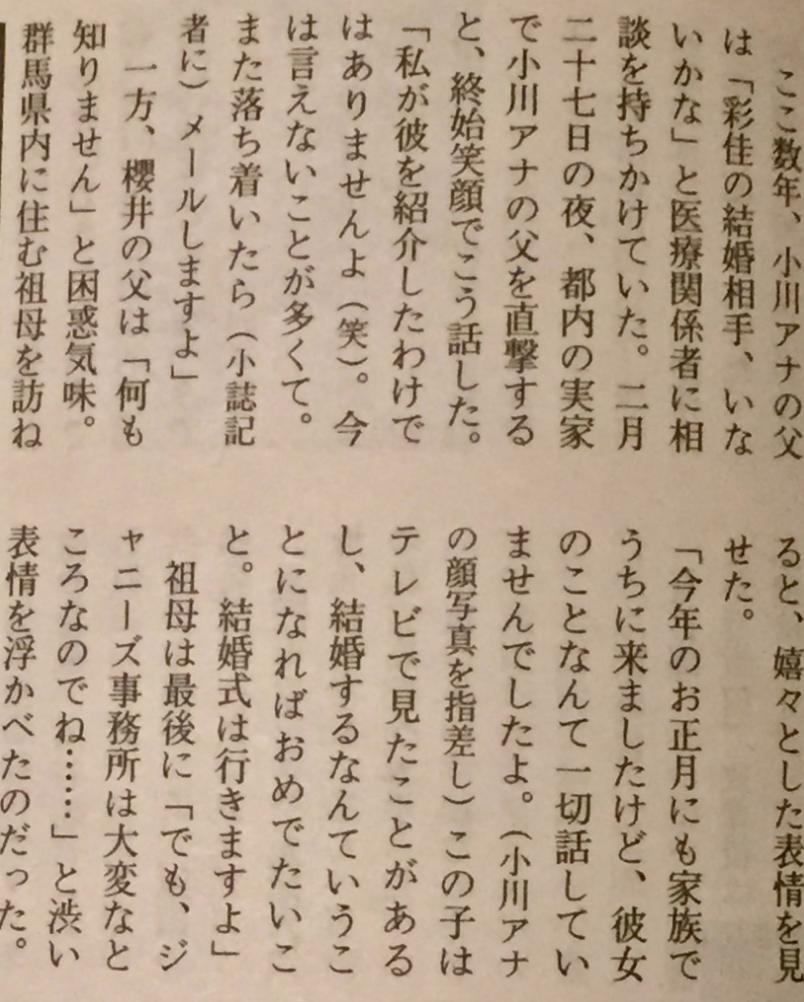 ここ数年、小川アナの父
は「彩佳の結婚相手、いな
いかな」と医療関係者に相
談を持ちかけていた。二月
二十七日の夜、都内の実家
で小川アナの父を直撃する
と、終始笑顔でこう話した。
「私が彼を紹介したわけで
はありませんよ（笑）。今
は言えないことが多くて。
また落ち着いたら（小誌記
者に）メールしますよ」
一方、櫻井の父は「何も
知りません」と困惑気味。
群馬県内に住む祖母を訪ね
ると、嬉々とした表情を見
せた。
「今年のお正月にも家族で
うちに来ましたけど、彼女
のことなんて一切話してい
ませんでしたよ。（小川アナ
の顔写真を指差し）この子は
テレビで見たことがある
し、結婚するなんていうこ
とになればおめでたいこ
と。結婚式は行きますよ」
祖母は最後に「でも、ジ
ャニーズ事務所は大変なと
ころなのでね……」と渋い
表情を浮かべたのだった。